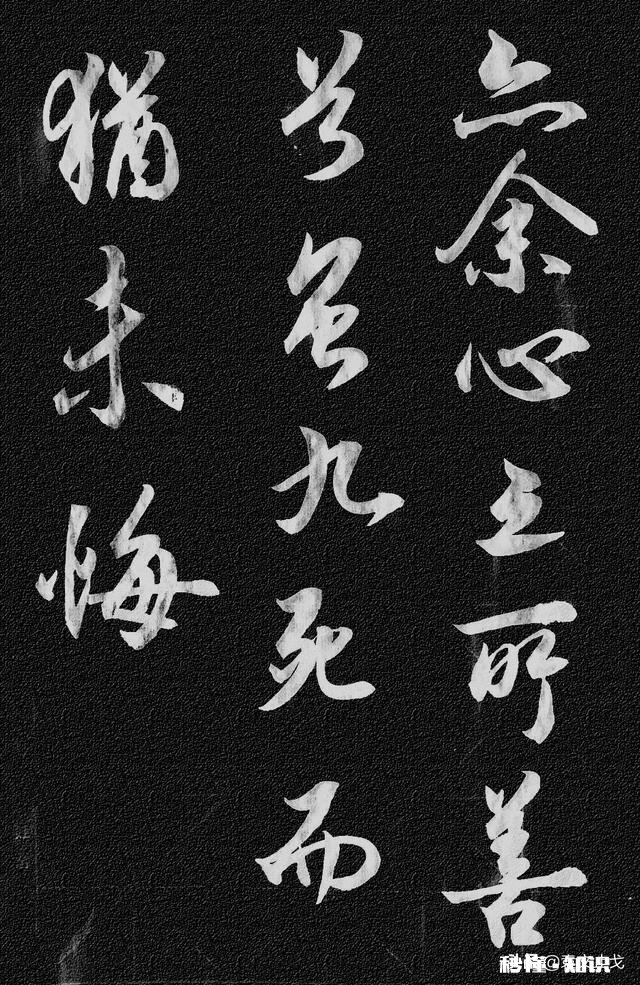 亦余心之所善
兮虽九死而
犹未悔
秒懂·知识